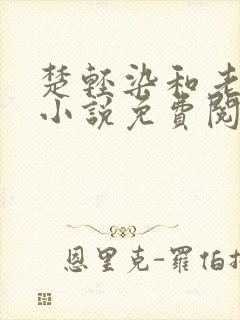 楚轻染和老
小说免費閱
恩里克-羅伯扌